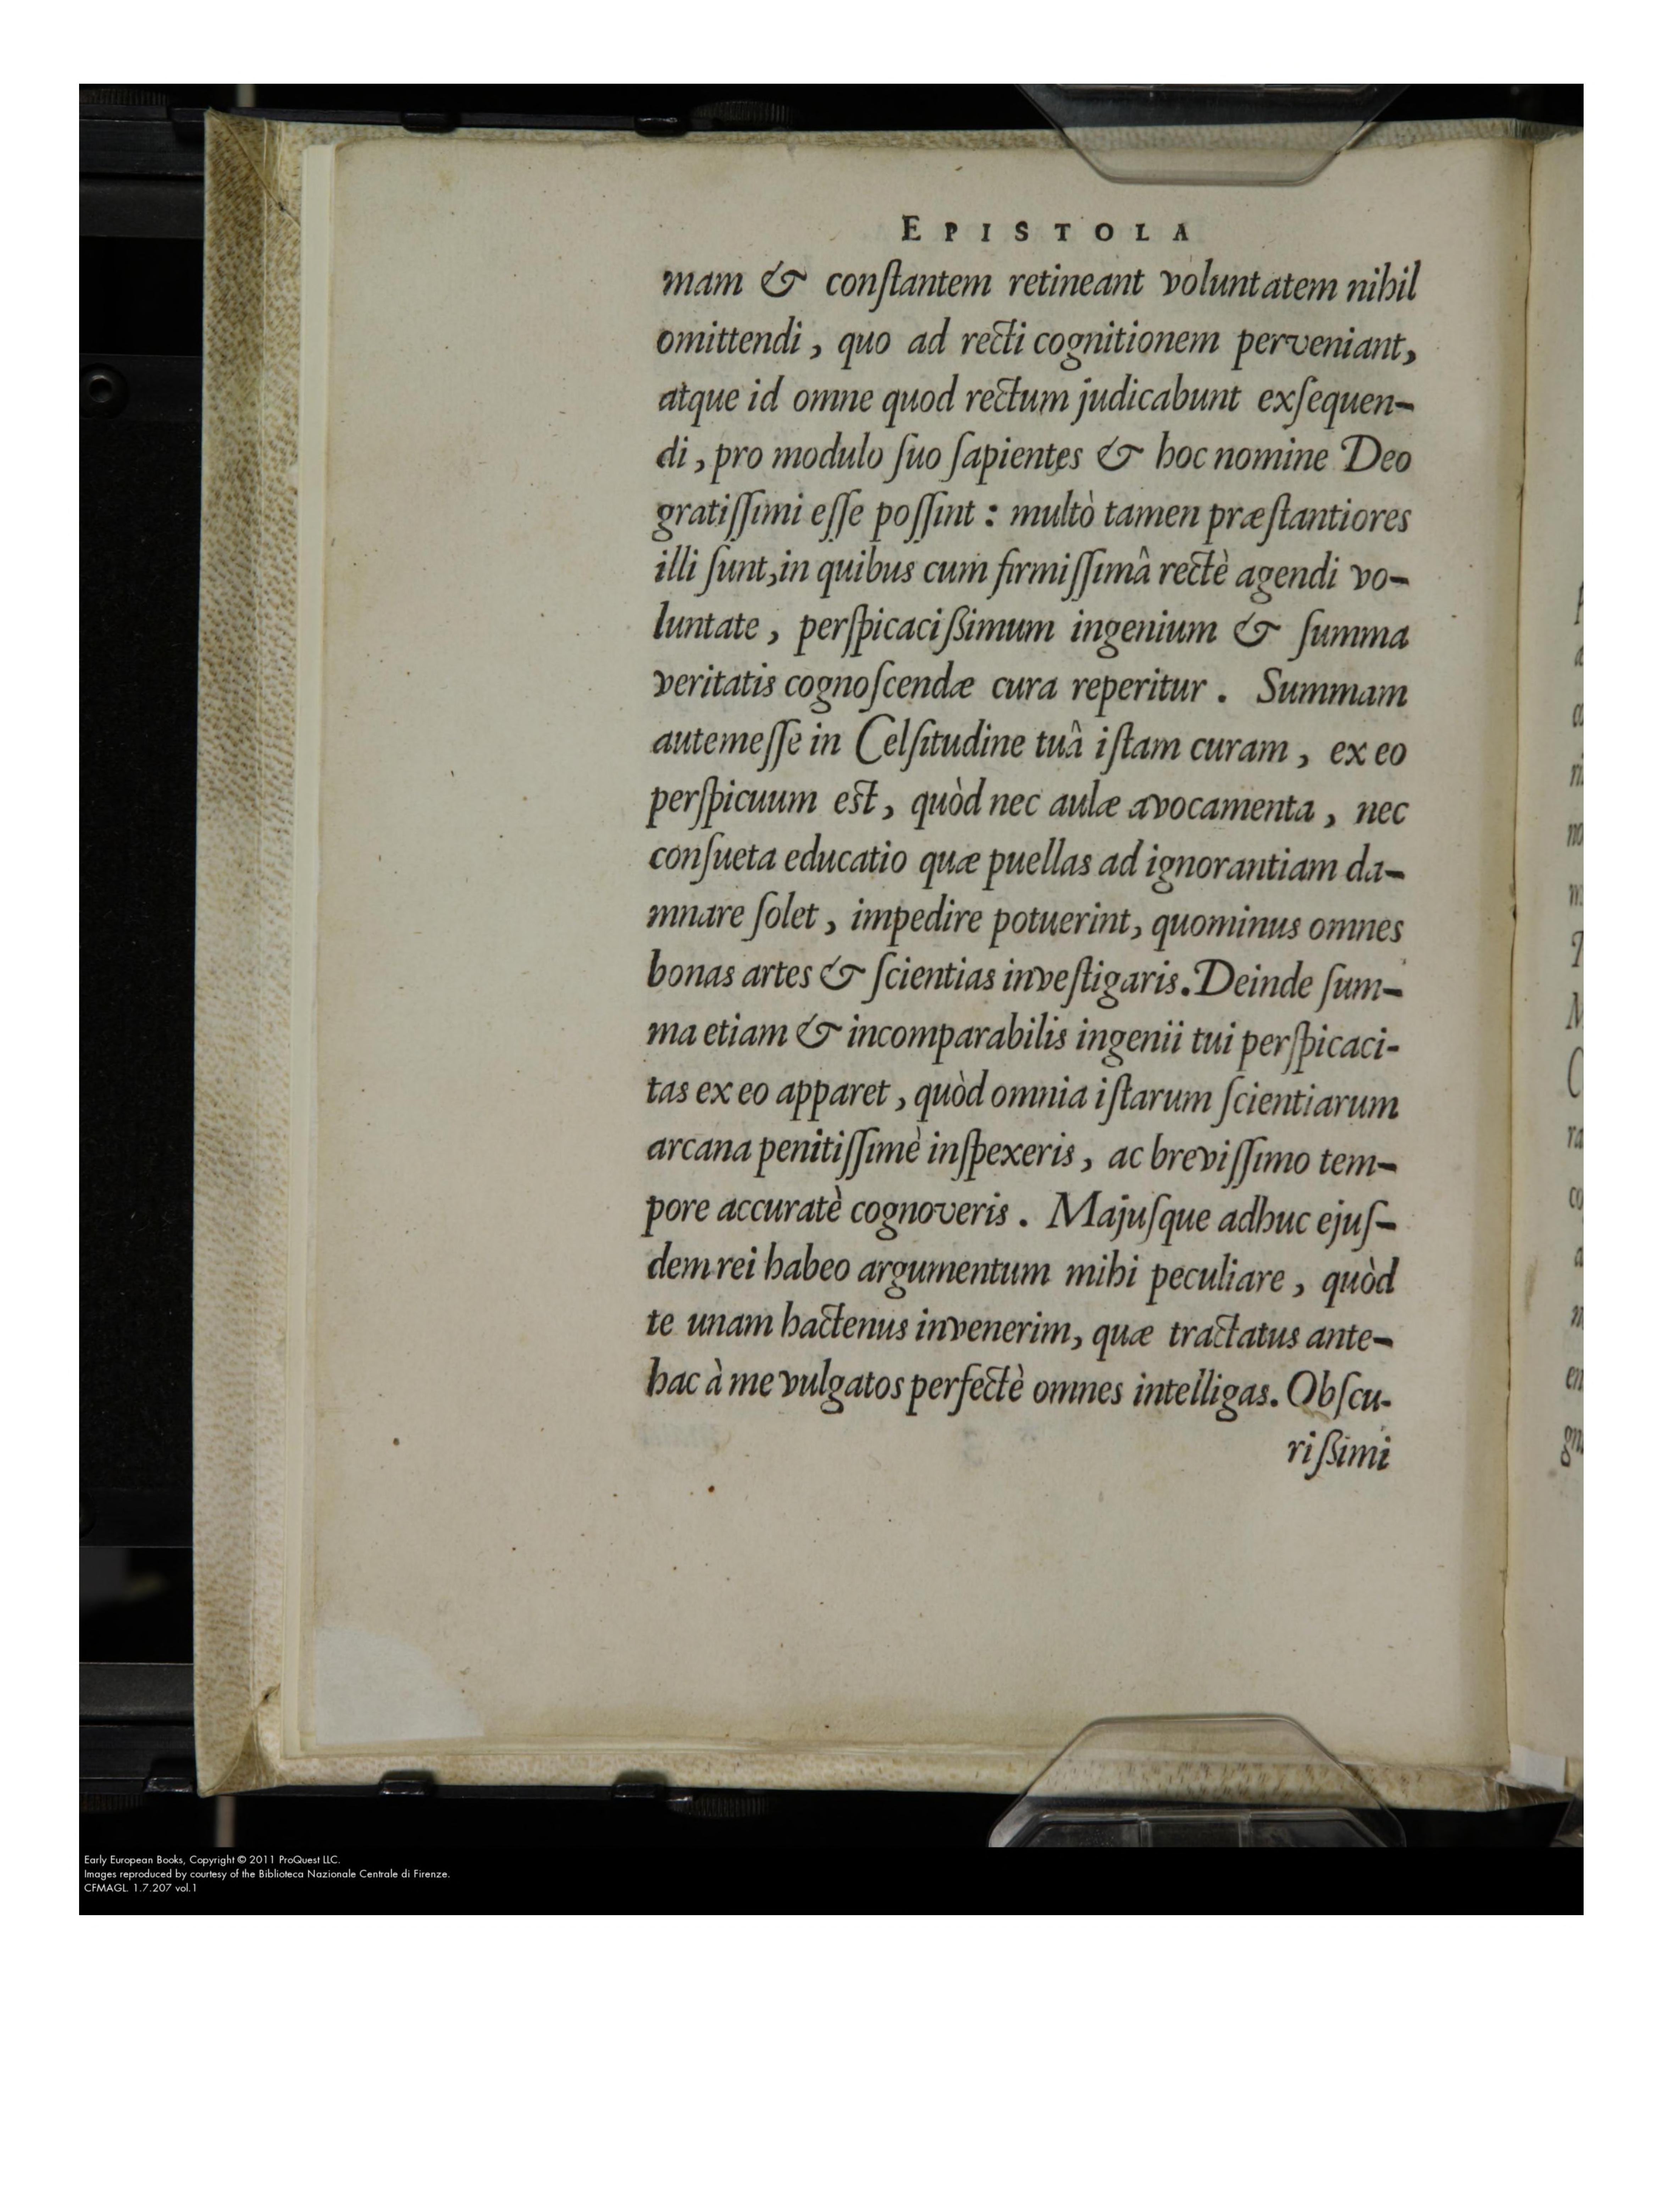 EPISTOLA
mam & conſtantem retineant voluntatem nihil
omittendi, quo ad recti cognitionem perveniant,
atque id omne quod rectum judicabunt exſequen-
di, pro modulo ſuo ſapientes & hoc nomine Deo
gratiſſimi eſſe poſſint: multò tamen præſtantiores
illi ſunt, in quibus cum firmiſſimâ rectè agendi vo-
luntate, perſpicaciſſimum ingenium & ſumma
veritatis cognoſcendæ cura reperitur. Summam
autem eſſe in Celſitudine tuâ iſtam curam, ex eo
perſpicuum est, quòd nec aulæ avocamenta, nec
conſueta educatio quæ puellas ad ignorantiam da-
mnare ſolet, impedire potuerint, quominus omnes
bonas artes & ſcientias inveſtigaris. Deinde ſum-
ma etiam & incomparabilis ingenii tui perſpicaci-
tas ex eo apparet, quòd omnia iſtarum ſcientiarum
arcana penitiſſimè inſpexeris, ac breviſſimo tem-
pore accuratè cognoveris. Majuſque adhuc ejuſ-
dem rei habeo argumentum mihi peculiare, quòd
te unam hactenus invenerim, quæ tractatus ante-
hac à me vulgatos perfectè omnes intelligas. Obſcu-
riſſimi
Early European Books, Copyright © 2011 ProQuest LLC.
Images reproduced by courtesy of the Biblioteca Nazionale Centrale di Firenze.
CFMAGL. 1.7.207 vol.1